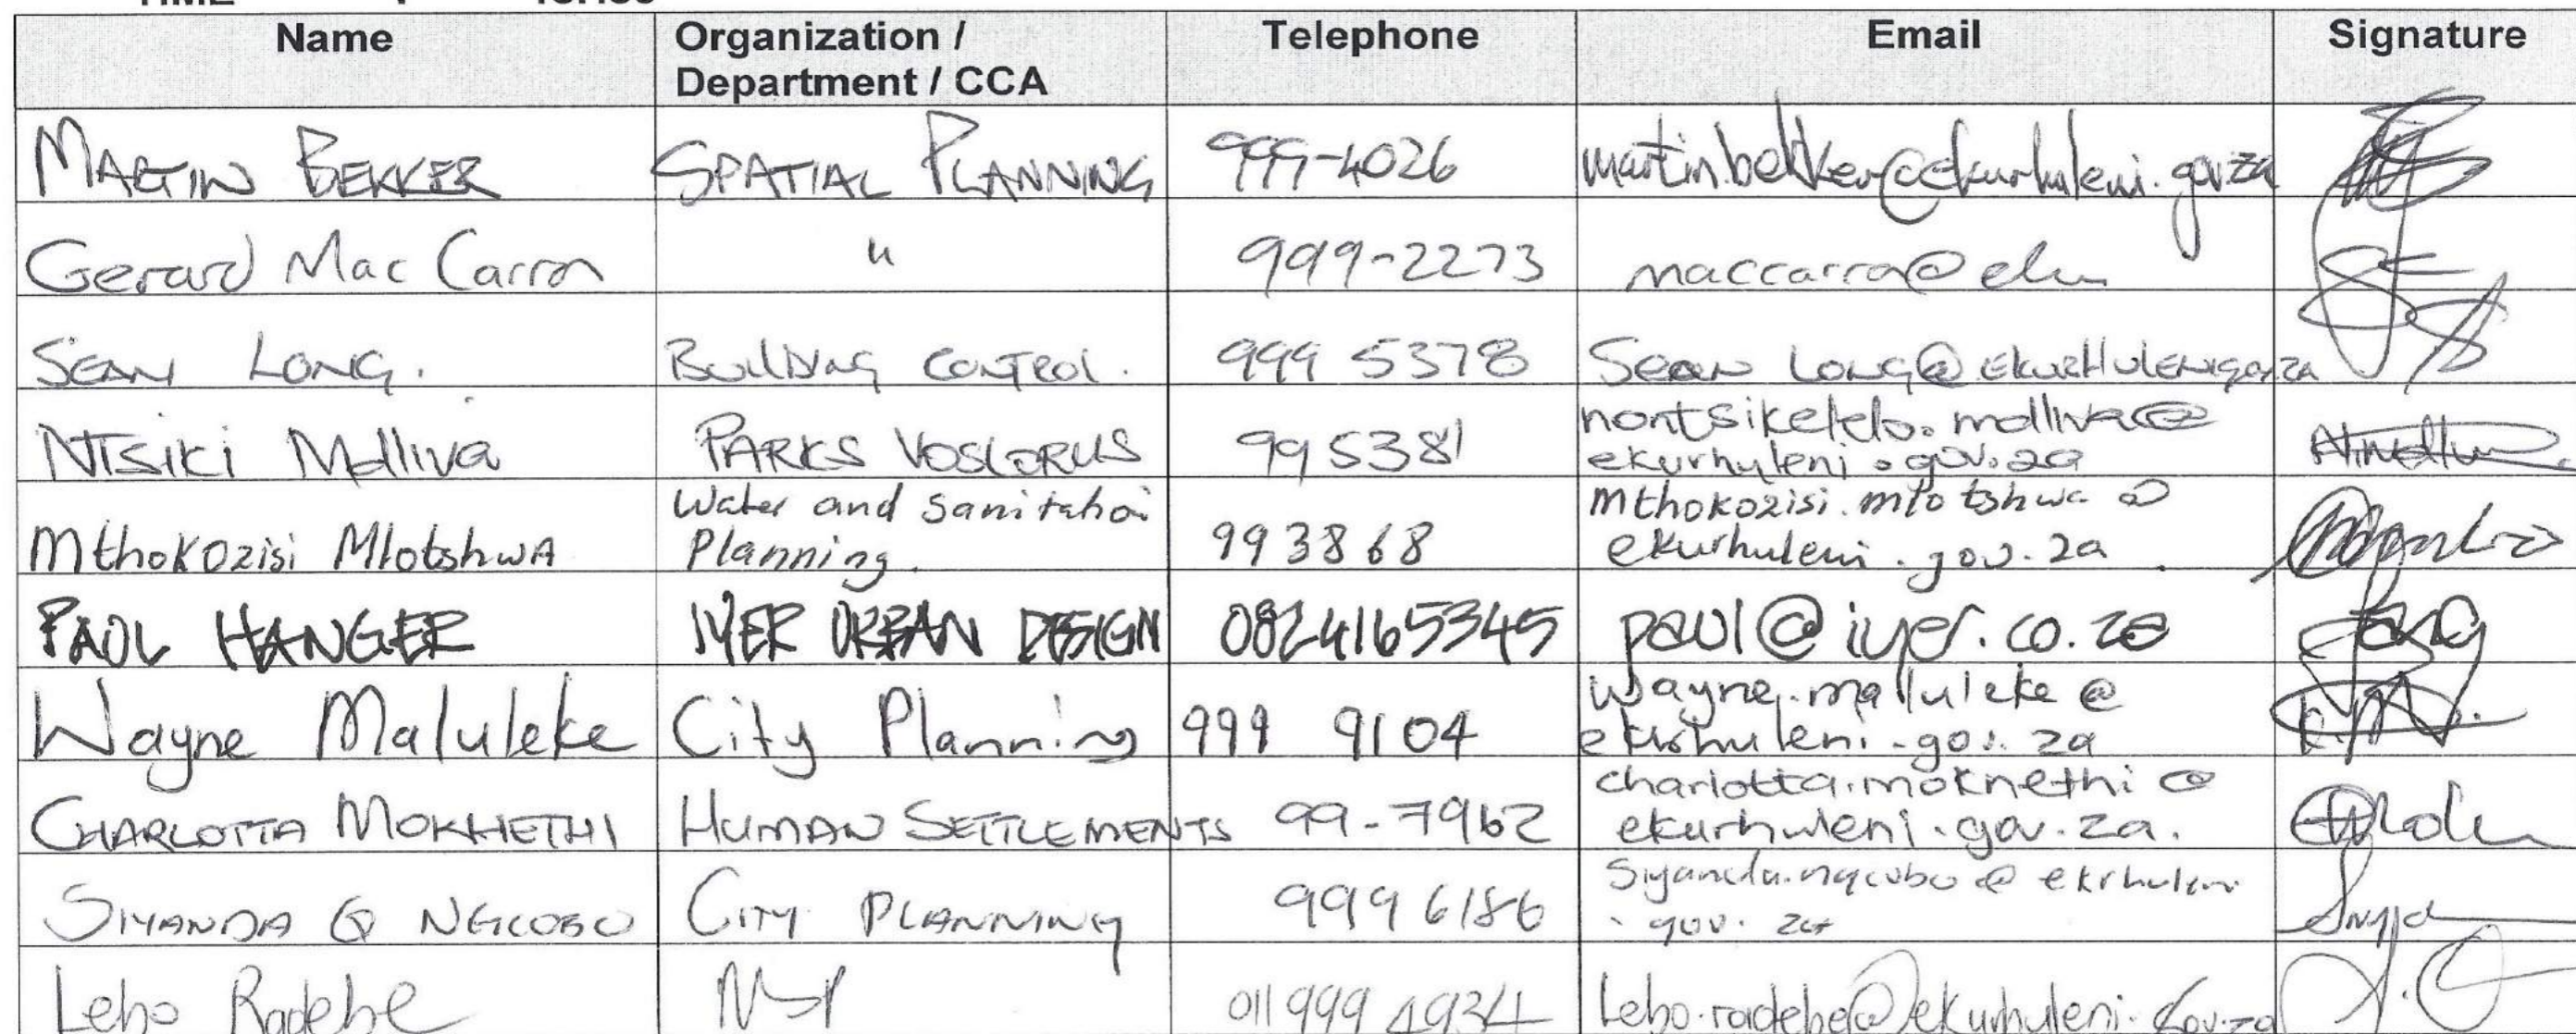 Name Organization / Telephone Email Signature
Department / CCA
MARTIN BEKKER SPATIAL PLANNING 999-4026 martin.bekker@ekurhuleni.gov.za
Gerard Mac Carron " 999-2273 maccarro@eku
SEAN LONG. BUILDING CONTROL. 999 5378 SEAN LONG@EKURHULENI.gov.za
NTSIKI Mdliva PARKS VOSLORUS 995381 nontsikelelo.mdliva@
ekurhuleni.gov.za
Mthokozisi MlotshwA Water and Sanitation 993868 Mthokozisi.mlotshwa @
Planning. ekurhuleni.gov.za
PAUL HANGER IYER URBAN DESIGN 0824165345 paul@iyer.co.za
Wayne Maluleke City Planning 999 9104 wayne.malluleke @
ekurhuleni.gov.za
CHARLOTTA MOKHETHI HUMAN SETTLEMENTS 99-7962 charlotta.mokhethi @
ekurhuleni.gov.za.
SIYANDA Q NGCOBO CITY PLANNING 999 6186 Siyanda.ngcobo @ ekrhuleni
. gov. za
Lebo Radebe 011 999 4934 Lebo.radebe@ekurhuleni.Gov.za